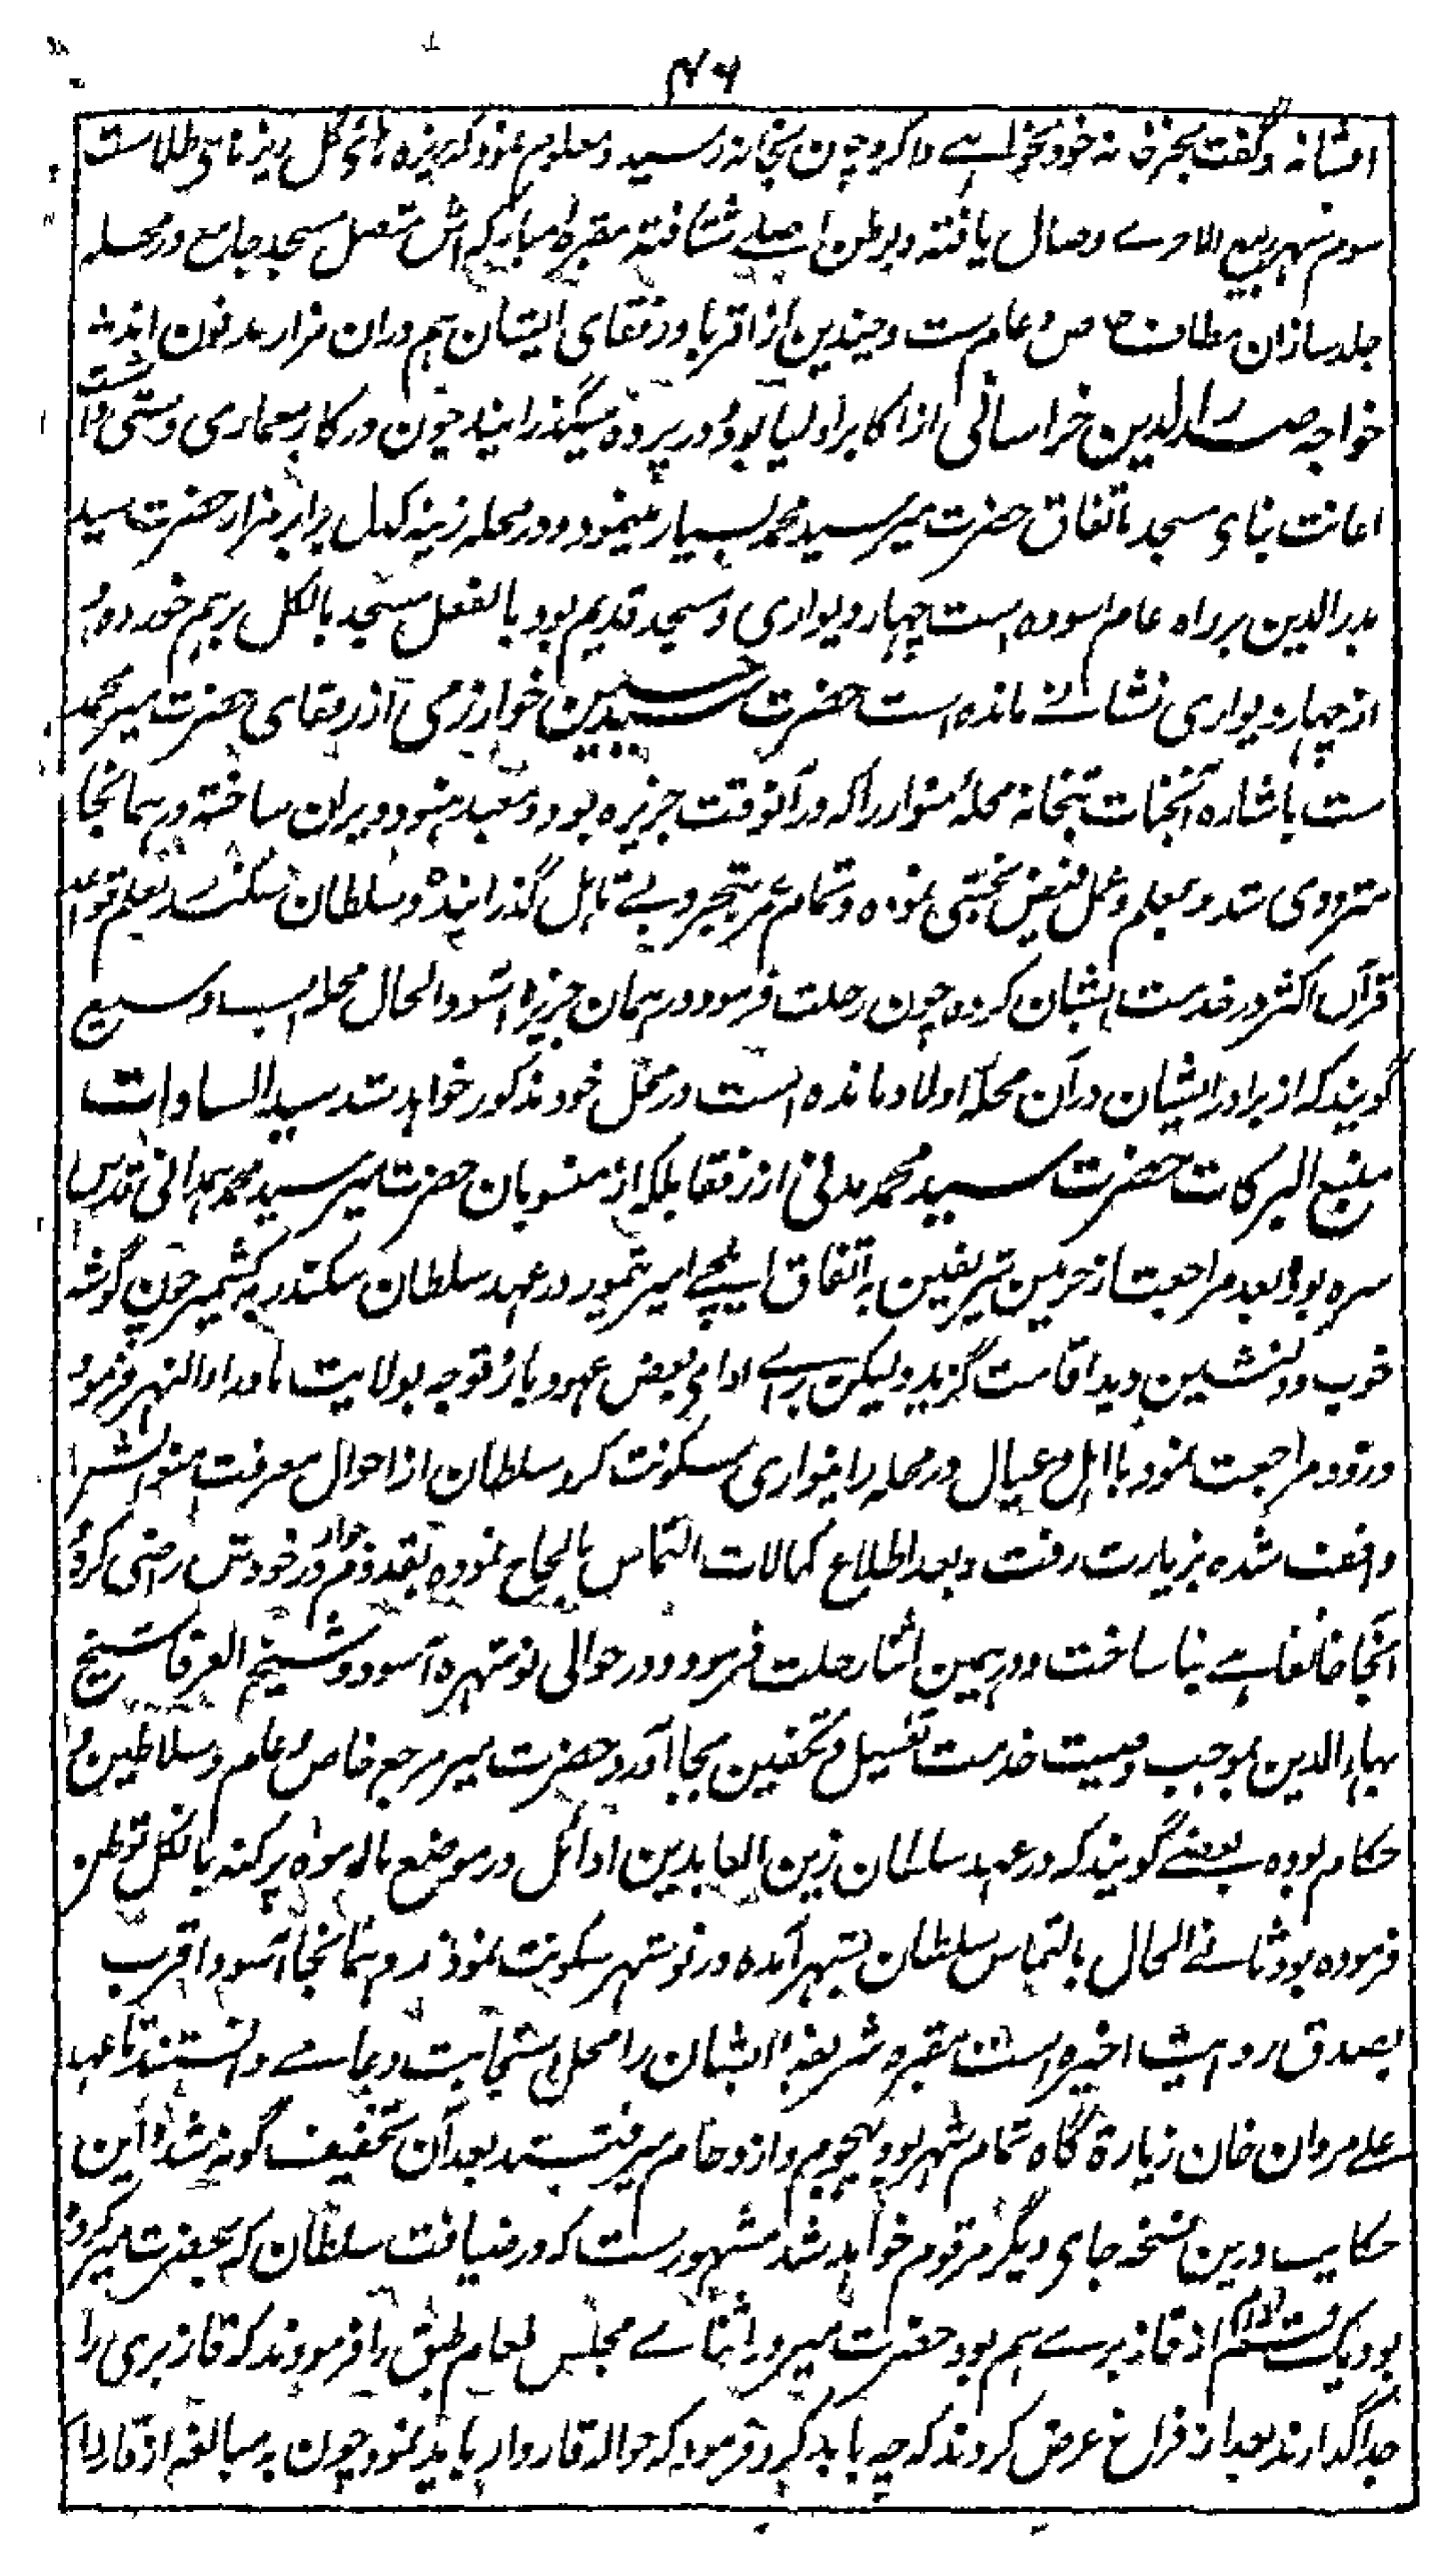 ۴۶
افشانه و گفت بجز خانه خود نخواهی وا کرد چون بخانه رسید و معلوم نمود که ریزه های گل ریزهای طلاست
سوم شهر ربیع الاول وصال یافته و بوطن اصلی شتافته مقبره مبارکه اش متصل مسجد جامع در محله
جلد سازان مطاف خاص و عام ست و چندین از اقربا و رفقای ایشان هم دران مزار مدفون اند
خواجه صدرالدین خراسانی از اکابر اولیا بود و در پرده میگذرانید چون در کار معماری دستی داشت
اعانت بنای مسجد باتفاق حضرت میر سید محمد بسیار مینمود و در محله زینه کهل برابر مزار حضرت سید
بدرالدین بر راه عام آسوده است چهار دیواری و مسجد قدیم بود بالفعل مسجد بالکل برهم خورده و
از چهار دیواری نشانی مانده است حضرت سید حسین خوارزمی از رفقای حضرت میر محمد
ست باشاره آنجناب بتخانه محله منوار را که در آنوقت جزیره بود و معبد هنود ویران ساخته در همانجا
منزوی شد و بعلم و عمل فیض بخشی نموده و تمام عمر بتجرد و بی تاهل گذرانید و سلطان سکندر تعلم قواعد
قرآن اکثر در خدمت ایشان کرده چون رحلت فرمود در همان جزیره آسود الحال محله ایست وسیع
گویند که از برادر ایشان در آن محله اولاد مانده است در محل خود مذکور خواهد شد سید السادات
منبع البرکات حضرت سید محمد مدنی از رفقا بلکه از منسوبان حضرت میر سید محمد همدانی قدس
سره بود بعد مراجعت از حرمین شریفین به اتفاق ایلچی امیر تیمور در عهد سلطان سکندر به کشمیر چون گوشه
خوب و دلنشین دید اقامت گزید و لیکن برای ادای بعض عهود باز توجه بولایت ماوراءالنهر فرمود
و زود مراجعت نمود با اهل و عیال در محله رانیواری سکونت کرد سلطان از احوال معرفت
واقف شده بزیارت رفت و بعد اطلاع کمالات التماس بالحاح نموده بقدوم در جوار خودش راضی کرد و
آنجا خانقاهی بنا ساخت و در همین اثنا رحلت فرمود و در حوالی نوشهره آسود و شیخ العرفا شیخ
بهاءالدین بموجب وصیت خدمت تغسیل و تکفین بجا آورد حضرت میر مرجع خاص و عام و سلاطین و
حکام بوده بعضی گویند که در عهد سلطان زین العابدین اوائل در موضع مالو موه پرگنه بانگل توطن
فرموده بود ثانی الحال بالتماس سلطان بشهر آمده در نوشهر سکونت نمود و همانجا آسود اقرب
بصدق روایت اخیره است مقبره شریفه ایشان را محل استجابت دعا می دانستند تا عهد
علی مردان خان زیارة گاه تمام شهر بود بهجوم و ازدحام میرفتند بعد آن تخفیف گونه شد و این
حکایت درین نسخه جای دیگر مرقوم خواهد شد مشهورست که در ضیافت سلطان که بحضرت میر کرده
بود یک قسم طعام از قاز بری هم بود حضرت میر در اثنای مجلس طعام طبق را فرمودند که قاز بری را
جدا گذارند بعد از فراغ عرض کردند که چه باید کرد فرمود که حواله قازدار باید نمود چون به مبالغه از قازدار